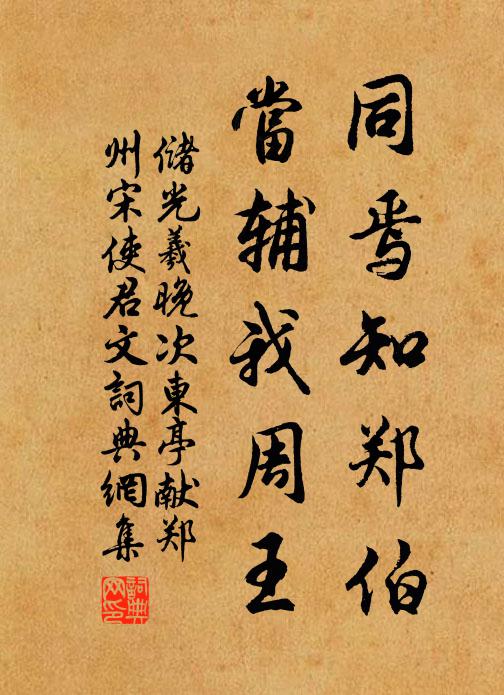 同焉知郑伯
當辅我周王
储光羲晚次東亭献郑
州宋使君文詞典網集
詞典网印